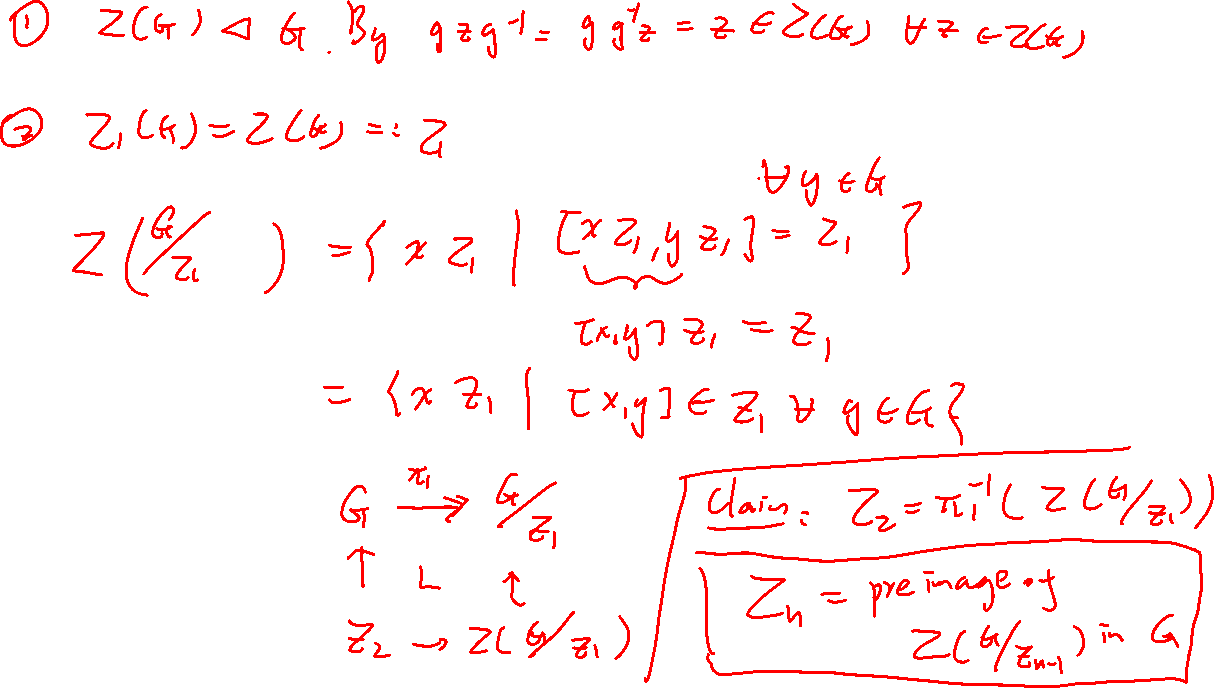 ① Z(G) ◁ G. By gzg⁻¹ = gg⁻¹z = z ∈ Z(G) ∀ z ∈ Z(G)
② Z₁(G) = Z(G) =: Z₁
∀ y ∈ G
Z(G/Z₁) = { x Z₁ | [x Z₁, y Z₁] = Z₁ }
[x,y] Z₁ = Z₁
= { x Z₁ | [x,y] ∈ Z₁ ∀ y ∈ G }
G —π₁↠ G/Z₁
↑ ∟ ↑
Z₂ → Z(G/Z₁)
Claim: Z₂ = π₁⁻¹( Z(G/Z₁))
Zₙ = preimage of
Z(G/Zₙ₋₁) in G